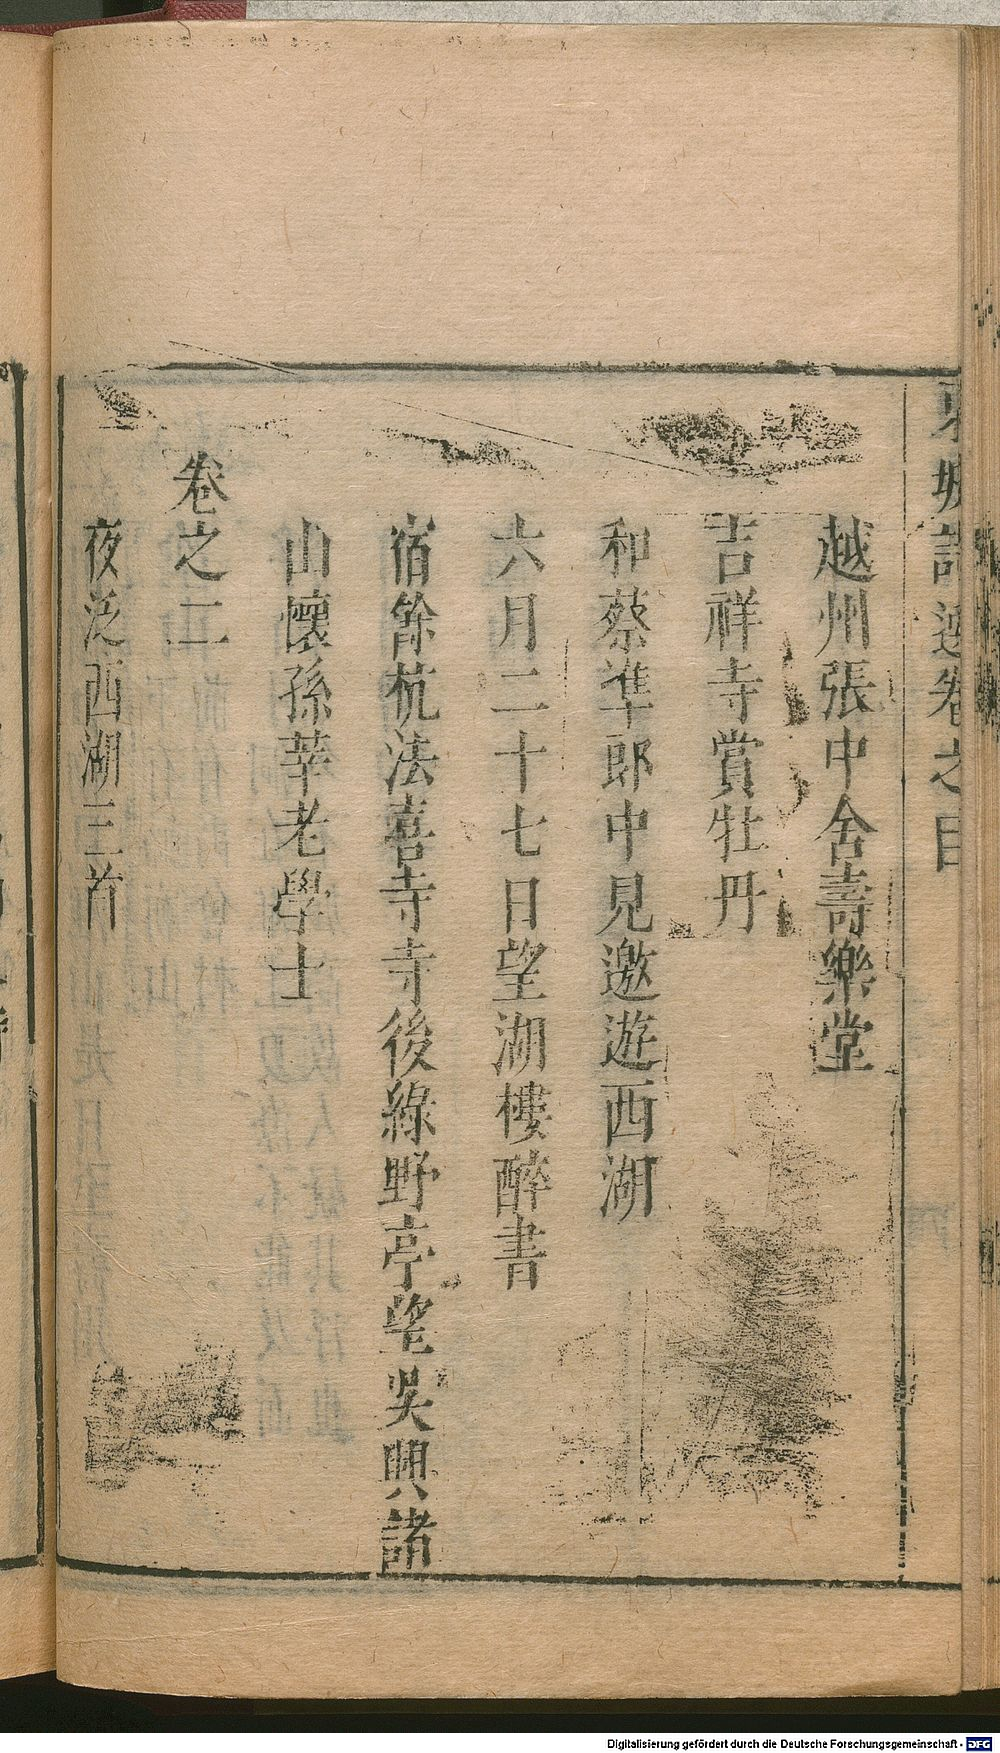 東坡詩選卷之目
越州張中舍壽樂堂
吉祥寺賞牡丹
和蔡準郎中見邀遊西湖
六月二十七日望湖樓醉書
宿餘杭法喜寺寺後綠野亭望吳興諸
山懷孫莘老學士
卷之二
夜泛西湖三首
Digitalisierung gefördert durch die Deutsche Forschungsgemeinschaft - DFG